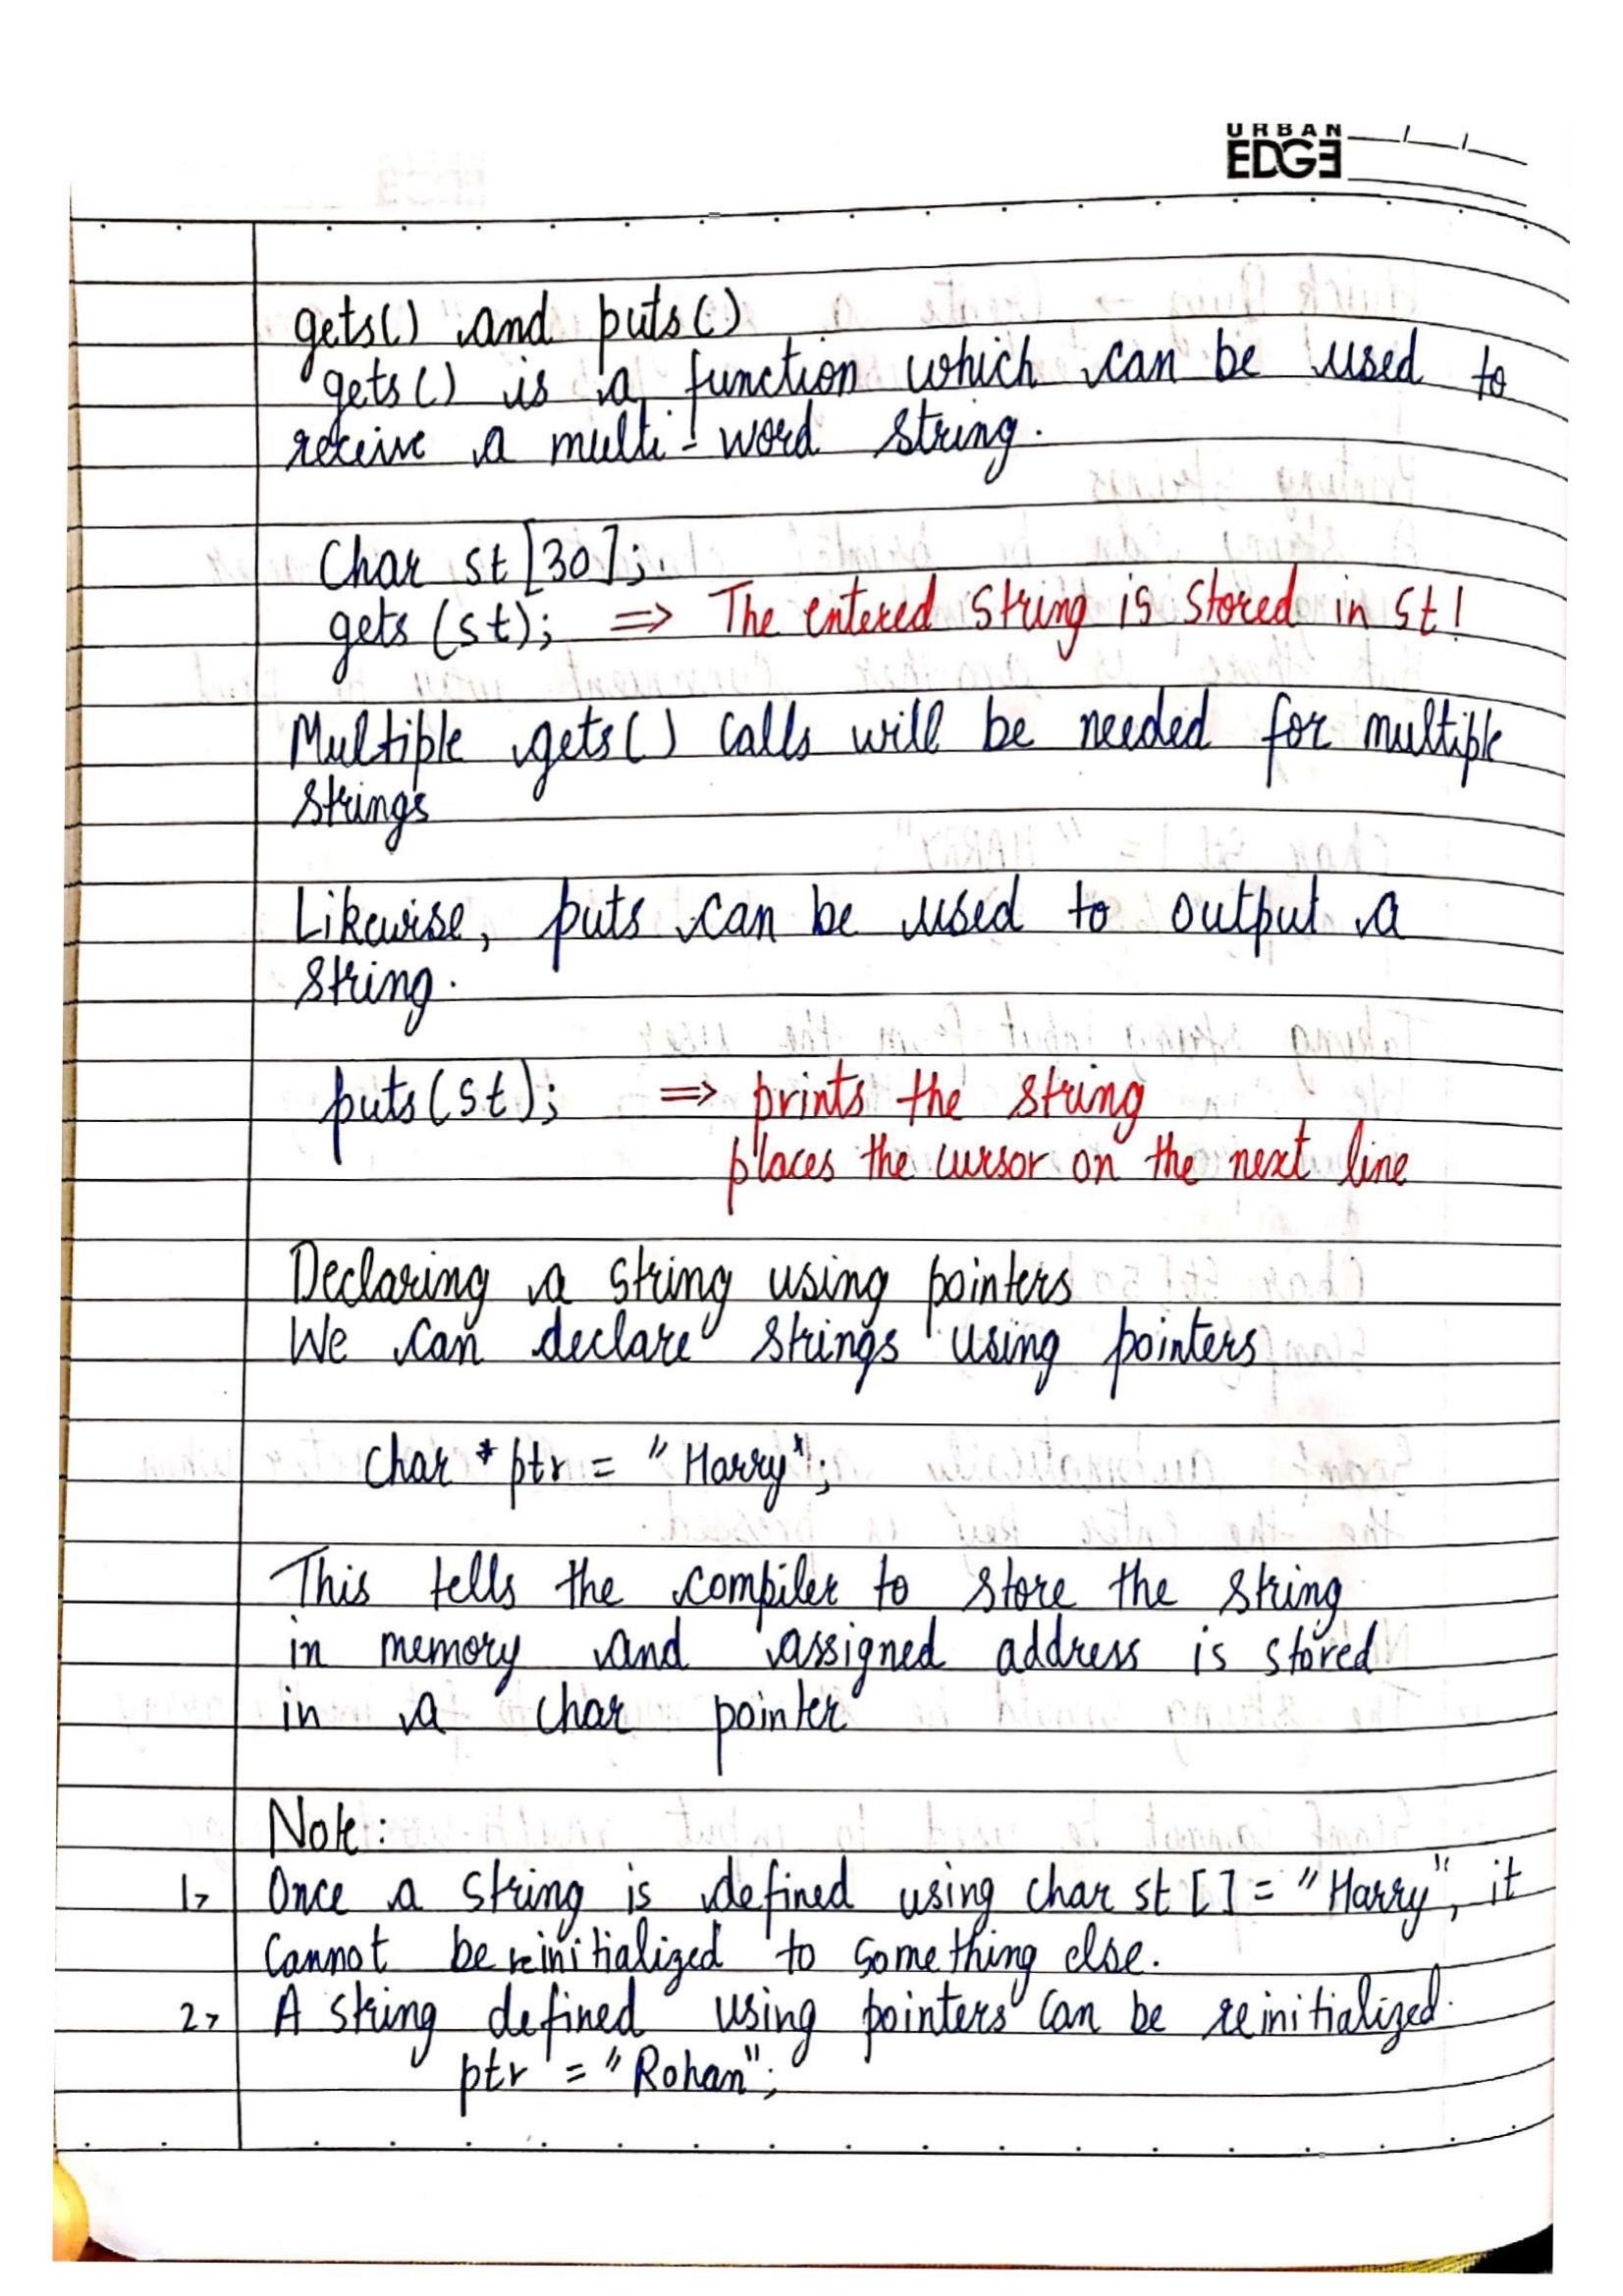 URBAN
EDGE
gets() and puts()
gets() is a function which can be used to
receive a multi-word string.
Char st[30];
gets(st); => The entered string is stored in st!
Multiple gets() calls will be needed for multiple
strings
Likewise, puts can be used to output a
string.
puts(st); => prints the string
places the cursor on the next line
Declaring a string using pointers
We can declare strings using pointers
char *ptr = "Harry";
This tells the compiler to store the string
in memory and assigned address is stored
in a char pointer
Note:
1> Once a string is defined using char st[] = "Harry", it
cannot be reinitialized to something else.
2> A string defined using pointers can be reinitialized.
ptr = "Rohan";